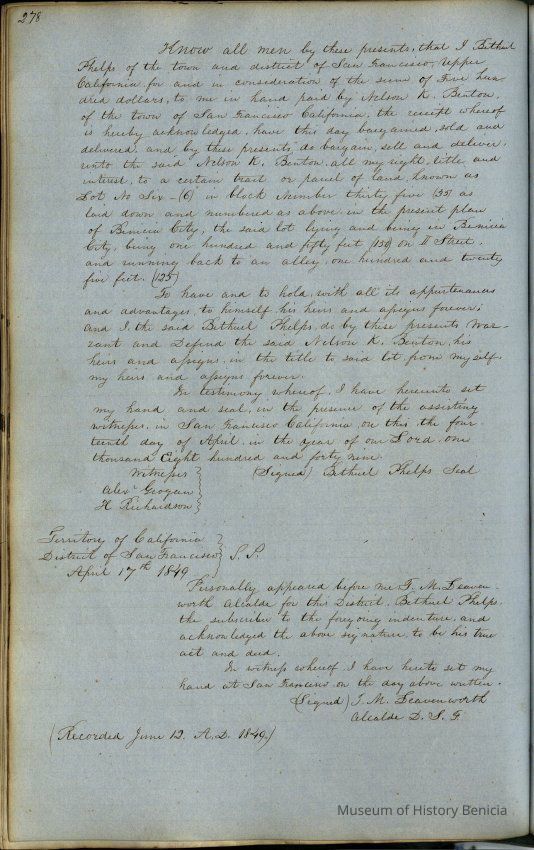 278
Know all men by these presents, that I Bethuel
Phelps of the town and district of San Francisco, Upper
California for and in consideration of the sum of Five hun-
dred dollars, to me in hand paid by Nelson K. Benton,
of the town of San Francisco California, the receipt whereof
is hereby acknowledged, have this day bargained, sold and
delivered, and by these presents, do bargain, sell and deliver,
unto the said Nelson K. Benton, all my right, title, and
interest, to a certain tract or parcel of land, known as
Lot No Six - (6) in block Number thirty five (35) as
laid down and numbered as above, in the present plan
of Benicia City, the said lot lying and being in Benicia
City, being one hundred and fifty feet (150) on II Street,
and running back to an alley, one hundred and twenty
five feet. (125)
To have and to hold, with all its appurtenances
and advantages, to himself, his heirs and assigns forever;
and I, the said Bethuel Phelps, do by these presents, War-
rant and Defend the said Nelson K. Benton, his
heirs and assigns, in the title to said lot, from myself,
my heirs, and assigns forever.
In testimony whereof, I have hereunto set
my hand and seal, in the presence of the assisting
witnesses, in San Francisco California, on this the four-
teenth day of April, in the year of our Lord, one
thousand Eight hundred and forty nine.
Witnesses (Signed) Bethuel Phelps Seal
Alexr Grogan
H Richardson
Territory of California
District of San Francisco S. S.
April 17th 1849
Personally appeared before me T. M. Leaven-
worth Alcalde for this District, Bethuel Phelps,
the subscriber to the foregoing indenture, and
acknowledged the above signature, to be his true
act and deed.
In witness whereof I have hereto set my
hand at San Francisco, on the day above written.
(Signed) T. M. Leavenworth
Alcalde D. S. F.
(Recorded June 12. A.D. 1849.)
Museum of History Benicia